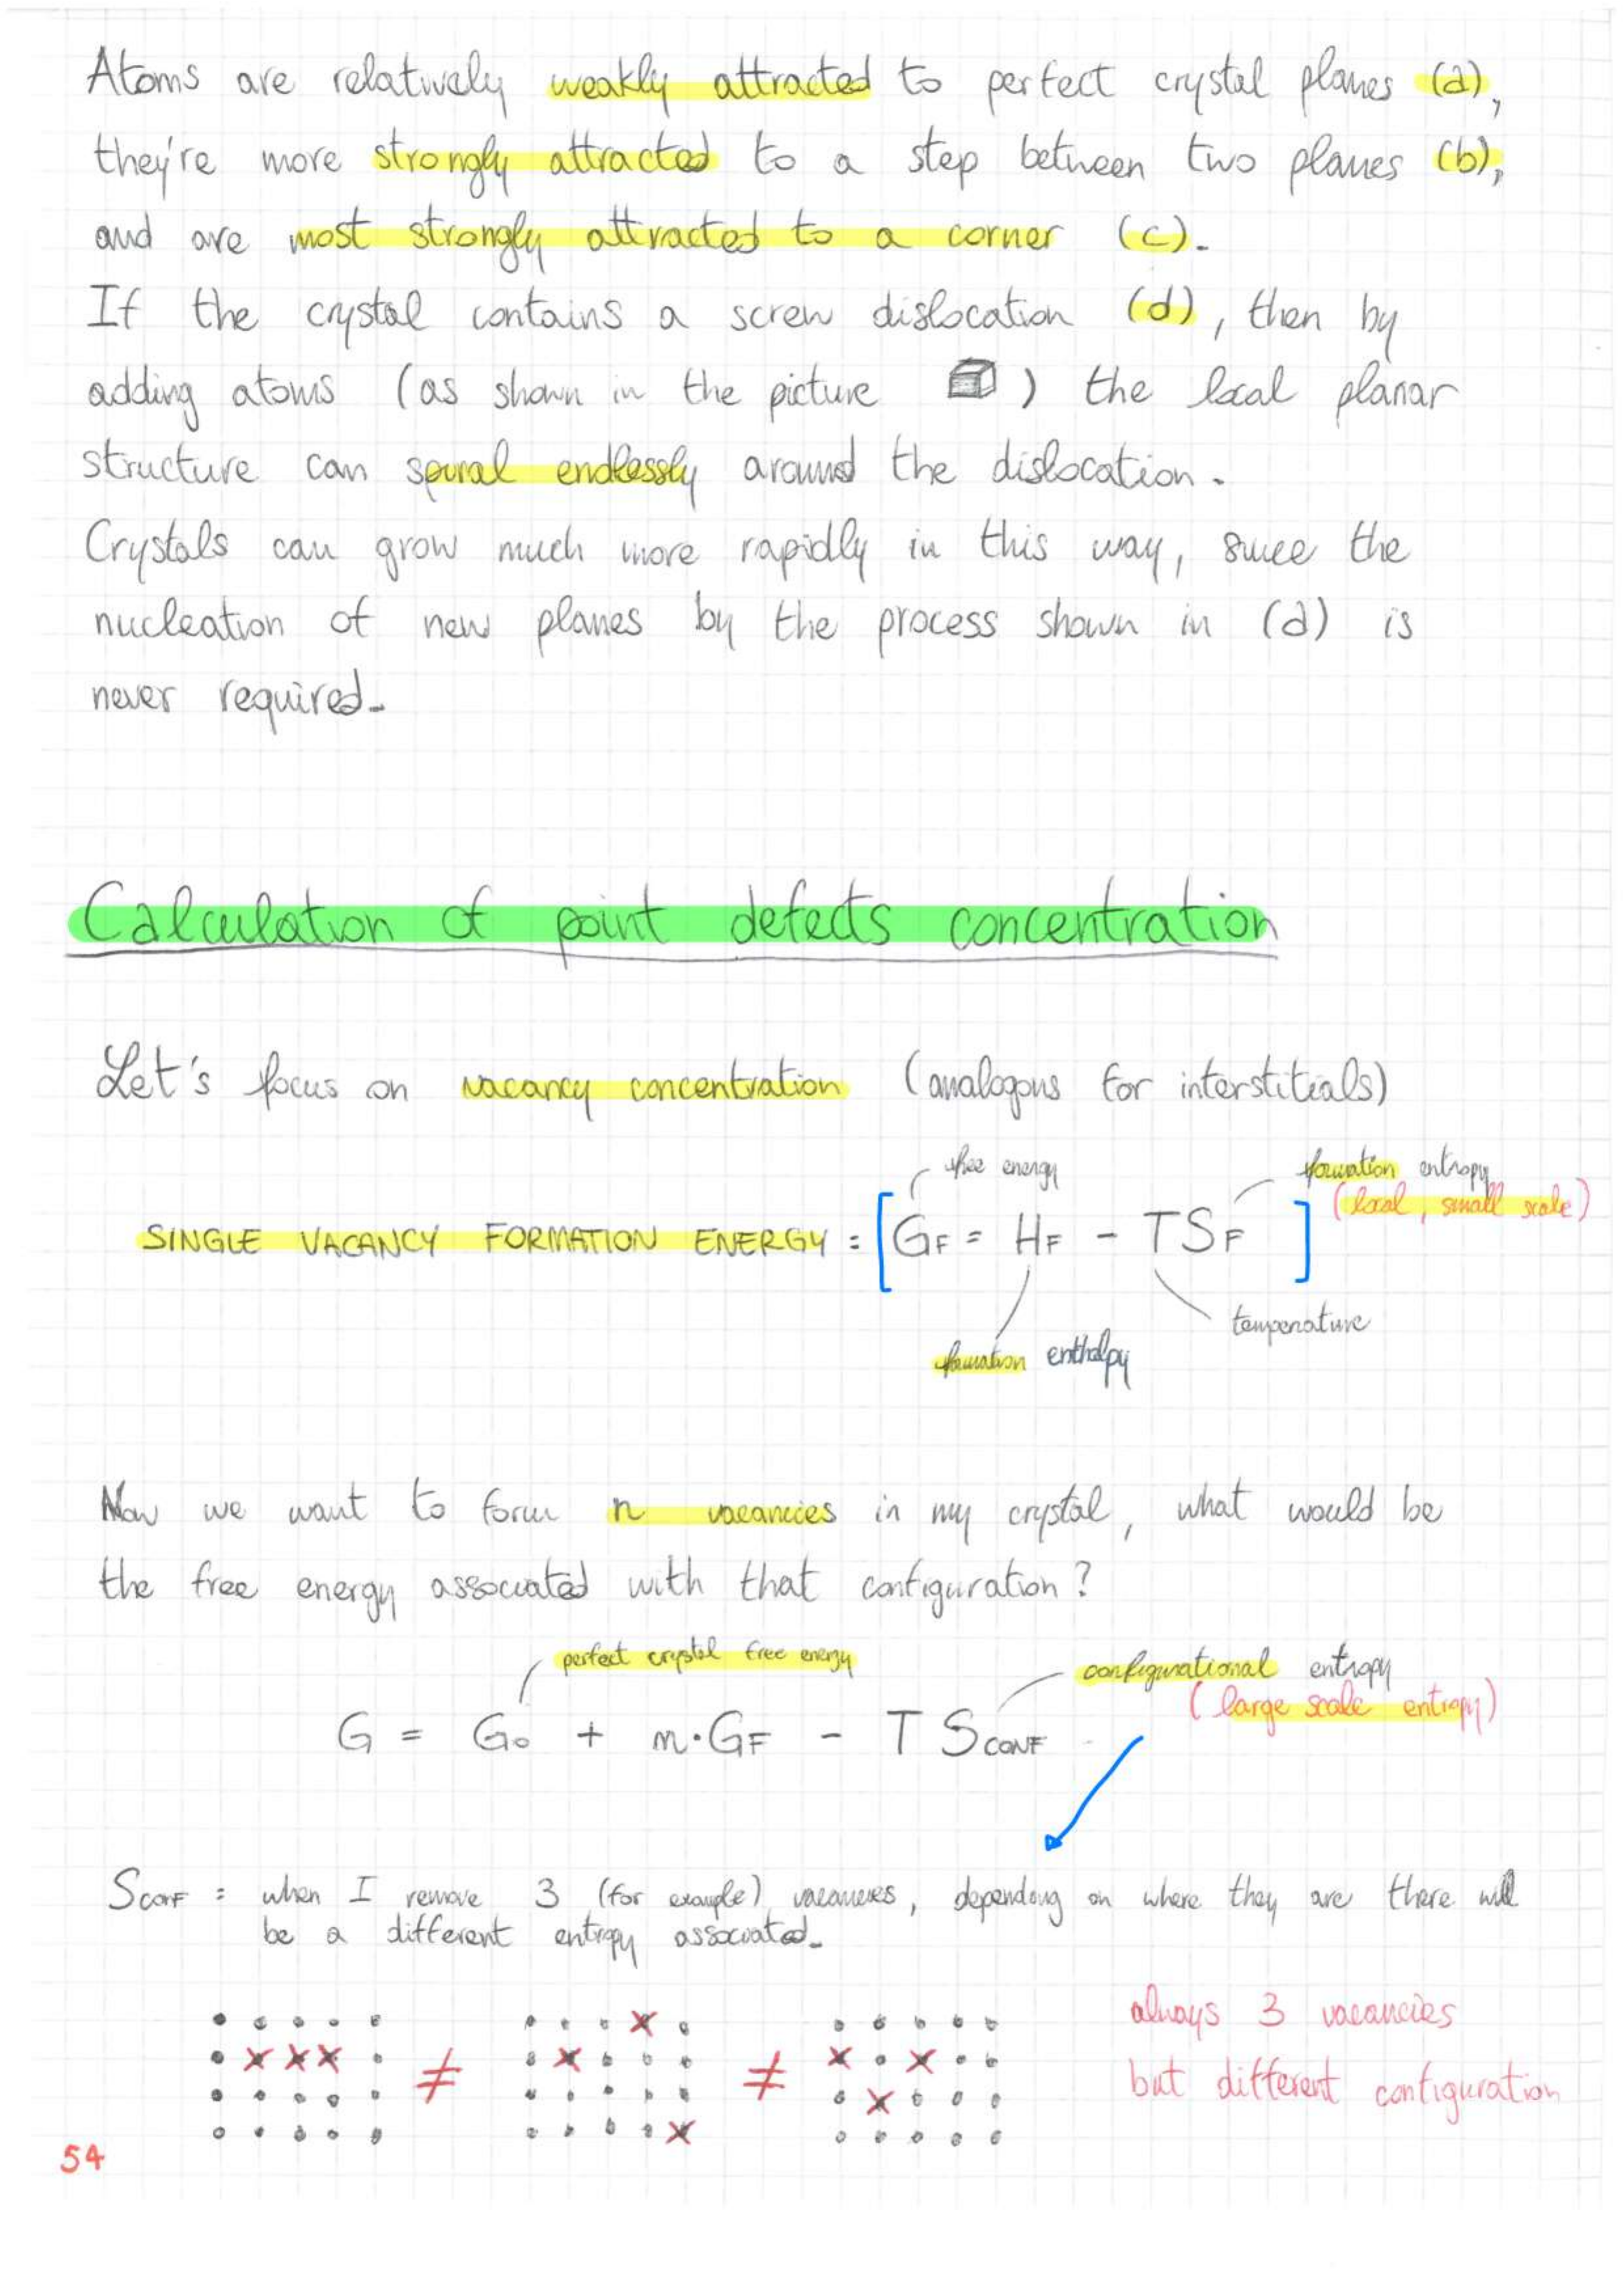 Atoms are relatively weakly attracted to perfect crystal planes (a),
they're more strongly attracted to a step between two planes (b),
and are most strongly attracted to a corner (c).
If the crystal contains a screw dislocation (d), then by
adding atoms (as shown in the picture ) the local planar
structure can spiral endlessly around the dislocation.
Crystals can grow much more rapidly in this way, since the
nucleation of new planes by the process shown in (a) is
never required.
Calculation of point defects concentration
Let's focus on vacancy concentration (analogous for interstitials)
free energy
formation entropy
(local, small scale)
SINGLE VACANCY FORMATION ENERGY : [GF = HF - TSF]
temperature
formation enthalpy
Now we want to form n vacancies in my crystal, what would be
the free energy associated with that configuration?
perfect crystal free energy
configurational entropy
(large scale entropy)
G = G0 + n·GF - T SCONF
SCONF : when I remove 3 (for example) vacancies, depending on where they are there will
be a different entropy associated.
≠ ≠
always 3 vacancies
but different configuration
54